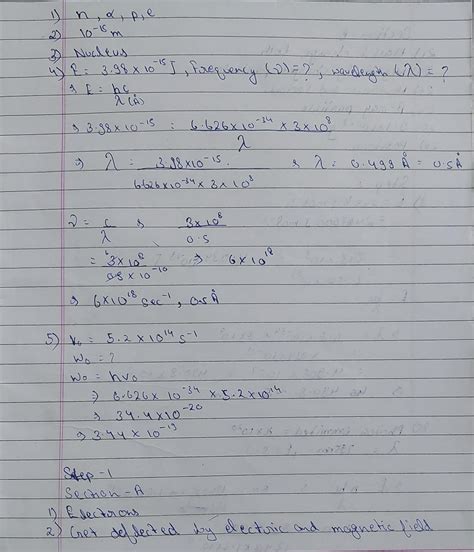 1) n, α, p, e
2) 10⁻¹⁵ m
3) Nucleus
4) E = 3.98 × 10⁻¹⁵ J, Frequency (ν) = ?, wavelength (λ) = ?
⇒ E = hc
λ (Å)
⇒ 3.98 × 10⁻¹⁵ = 6.626 × 10⁻³⁴ × 3 × 10⁸
λ
⇒ λ = 3.98 × 10⁻¹⁵ ⇒ λ = 0.498 Å = 0.5 Å
6.626 × 10⁻³⁴ × 3 × 10⁸
ν = c ⇒ 3 × 10⁸
λ 0.5
= 3 × 10⁸ ⇒ 6 × 10¹⁸
0.5 × 10⁻¹⁰
⇒ 6 × 10¹⁸ sec⁻¹, 0.5 Å
5) ν₀ = 5.2 × 10¹⁴ s⁻¹
W₀ = ?
W₀ = hν₀
⇒ 6.626 × 10⁻³⁴ × 5.2 × 10¹⁴
⇒ 34.4 × 10⁻²⁰
⇒ 3.44 × 10⁻¹⁹
Step-1
Section-A
1) Electrons
2) Get deflected by electric and magnetic field